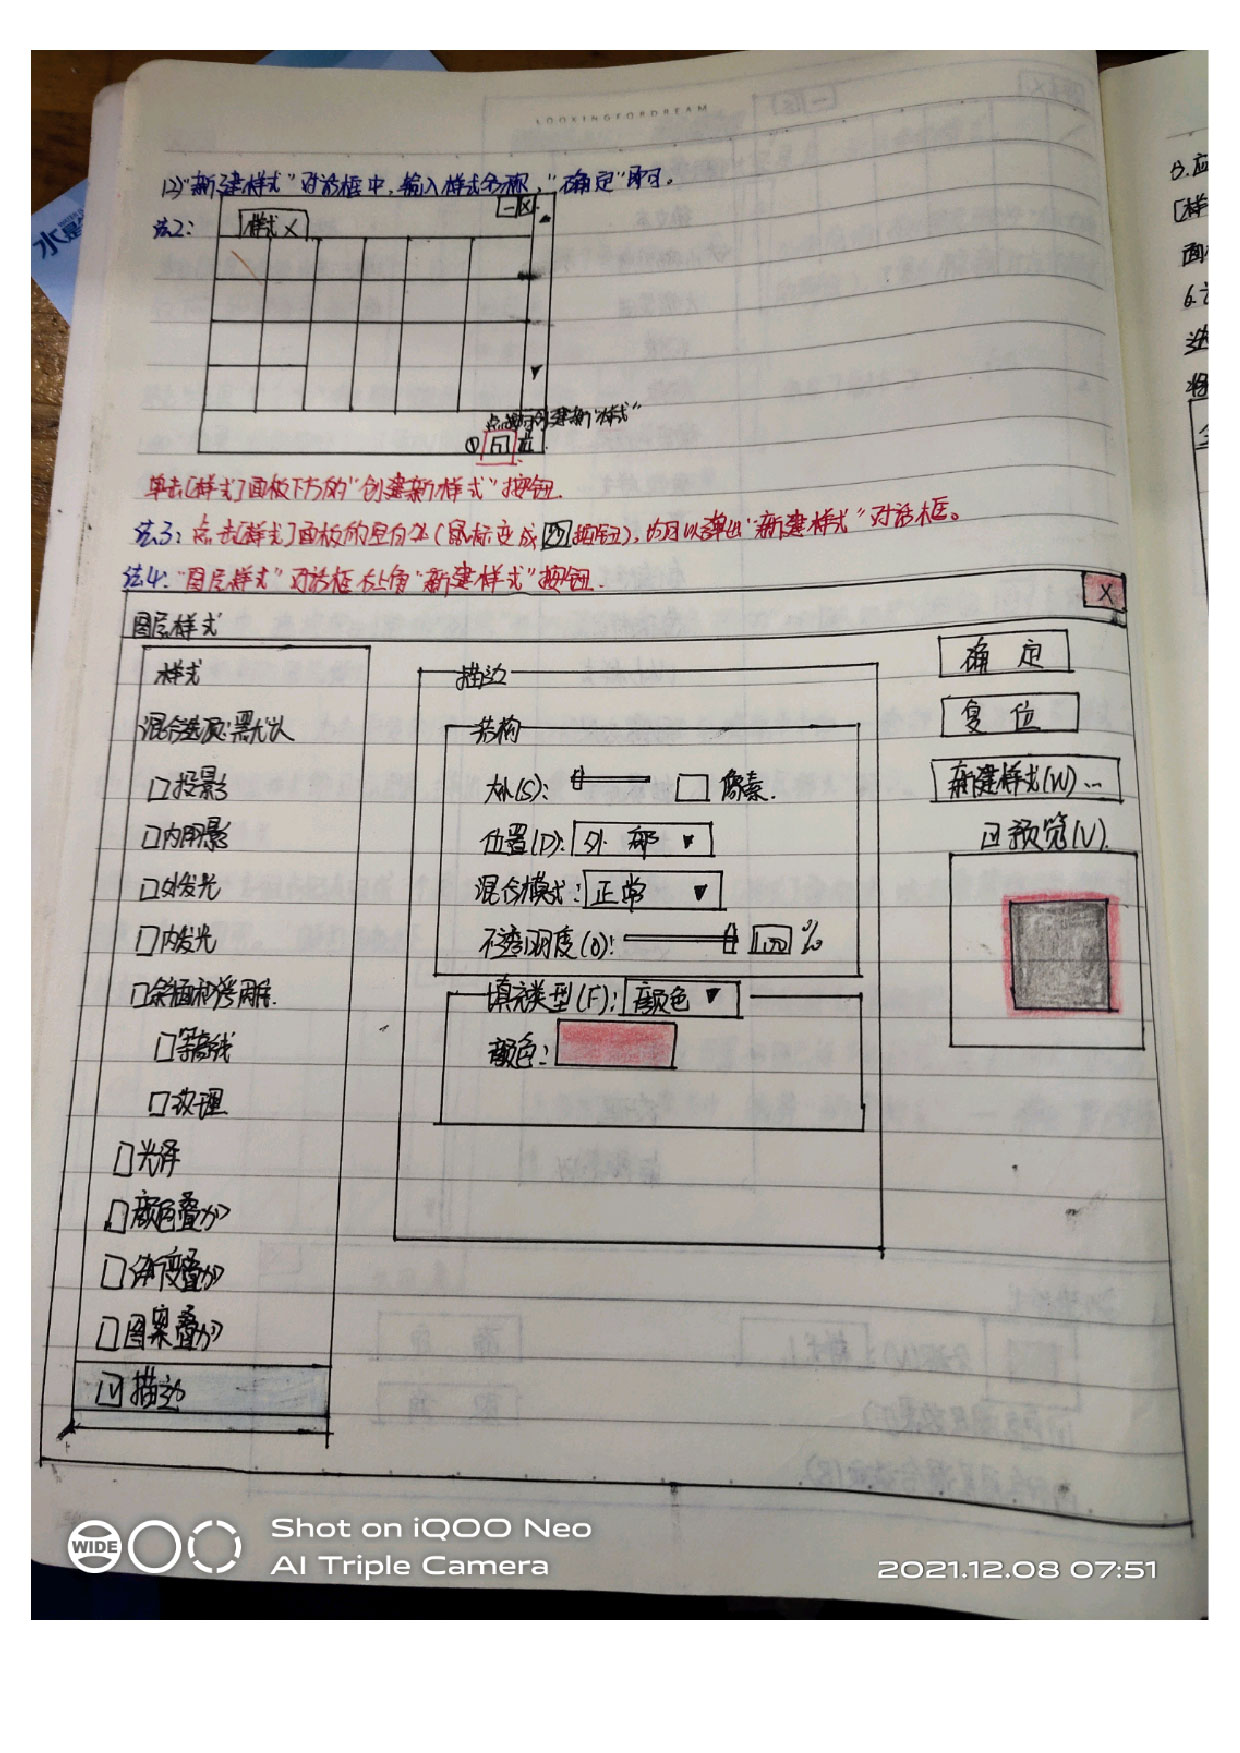 LOOKINGFORDREAM
(2)"新建样式"对话框中,输入样式名称,"确定"即可。
法2:
样式 X
— X
点击创建新"样式"
①
单击[样式]面板下方的"创建新样式"按钮.
法3:点击[样式]面板的空白处(鼠标变成 按钮),均可以弹出"新建样式"对话框。
法4:"图层样式"对话框右上角"新建样式"按钮.
X
图层样式
样式
混合选项:默认
投影
内阴影
外发光
内发光
斜面和浮雕
等高线
纹理
光泽
颜色叠加
渐变叠加
图案叠加
描边
描边
结构
大小(S): 像素.
位置(P): 外 部
混合模式: 正常
不透明度(O): 100 %
填充类型(F): 颜色
颜色:
确 定
复 位
新建样式(W)...
预览(V)
5.应
[样
面
6.
将
水
WIDE
Shot on iQOO Neo
AI Triple Camera
2021.12.08 07:51